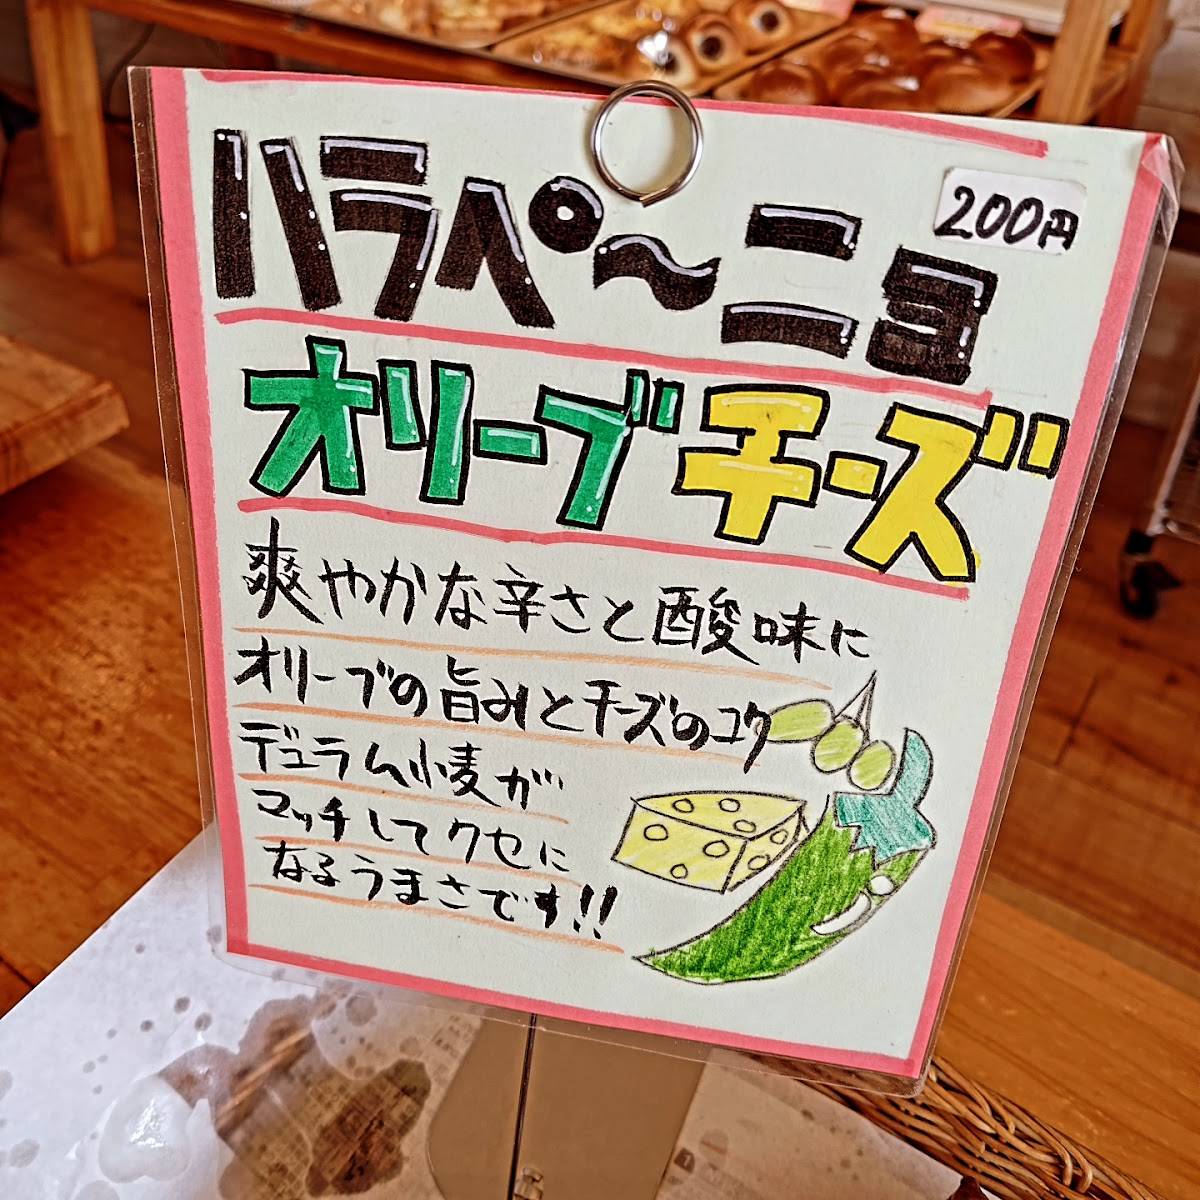 ハラペ〜ニョ
200円
オリーブチーズ
爽やかな辛さと酸味に
オリーブの旨みとチーズのコク
デュラム小麦が
マッチしてクセに
なるうまさです!!